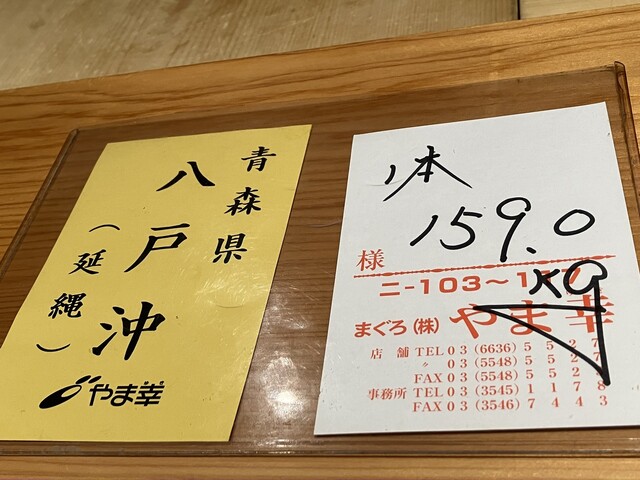 青森県
八戸沖
(延縄)
やま幸
1本
159.0
Kg
様
ニ-103~1
まぐろ(株)やま幸
店舗 TEL 03 (6636) 5527
〃 03 (5548) 5527
FAX 03 (5548) 5527
事務所 TEL 03 (3545) 1178
FAX 03 (3546) 7443